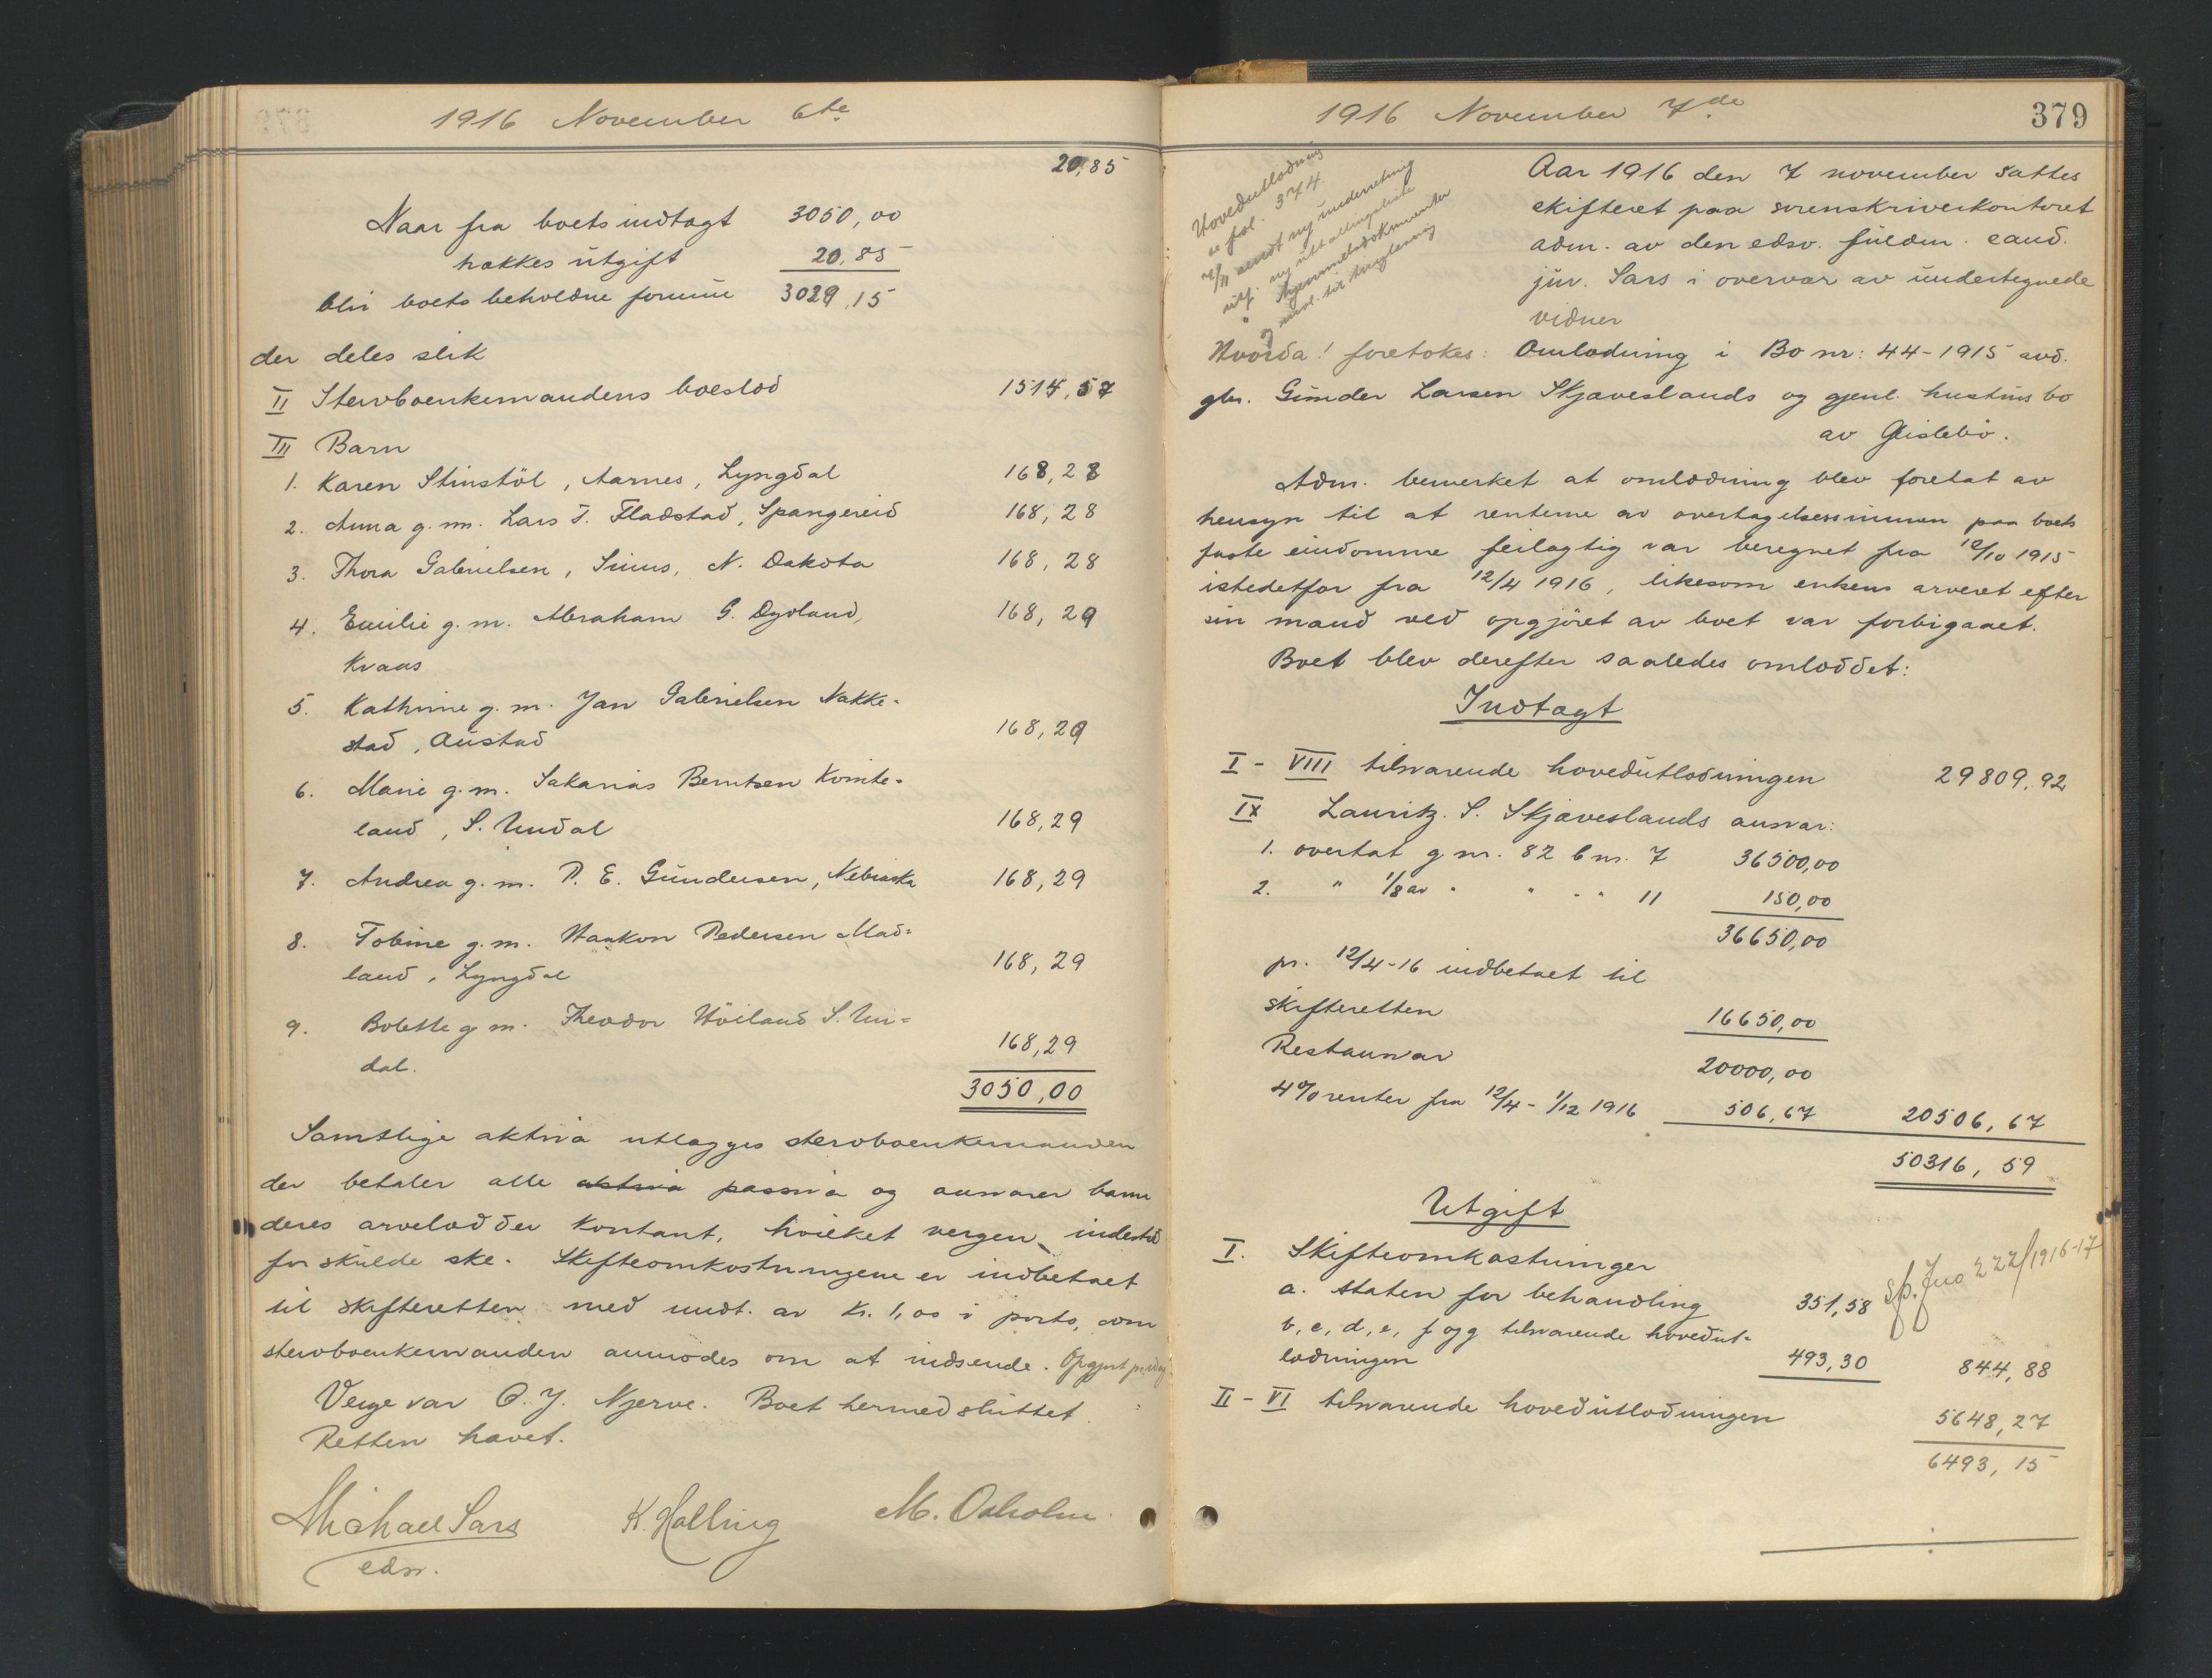 1916 November 6te
20,85
Naar fra boets indtægt 3050,00
trækkes utgift 20,85
blir boets beholdne formue 3029,15
der deles slik
II Stervboenkemandens boeslod 1514,57
III Barn
1. Karen Stinstöl, Aarnes, Lyngdal 168,28
2. Anna g. m. Lars T. Fladstad, Spangereid 168,28
3. Thora Gabrielsen, Sinus, N. Dakota 168,28
4. Emilie g. m. Abraham G. Dydland, 168,29
Kvaas
5. Kathrine g. m. Jan Gabrielsen Nakke-
stad, Austad 168,29
6. Marie g. m. Sakarias Berntsen Kvinte-
land, S. Undal 168,29
7. Andrea g. m. P. E. Gundersen, Nebraska 168,29
8. Tobine g. m. Haakon Pedersen Mad-
land, Lyngdal 168,29
9. Bolette g. m. Theodor Höiland S. Un-
dal. 168,29
3050,00
Samtlige aktiva utlægges stervboenkemanden
der betaler alle aktiva passiva og ansvarer barn
deres arvelodder kontant, hvilket vergen indestod
for skulde ske. Skifteomkostningene er indbetalt
til skifteretten med undt. av kr. 1,00 i porto, som
stervboenkemanden anmodes om at indsende. Opgjort
Verge var O. J. Njerve. Boet hermed sluttet.
Retten hævet.
Michael Sars K. Halling M. Oxholm.
edsv.
1916 November 7de
379
Hovedutlodning
se fol. 374.
7/11 sendt ny underretning
utf. ny utbetalingsliste
" hjemmelsdokumenter
og til tinglæsning
Aar 1916 den 7 november sattes
skifteret paa sorenskriverkontoret
adm. av den edsv. fuldm. cand.
jur. Sars i overvær av undertegnede
vidner
Hvorda! foretokes: Omlodning i Bo nr: 44-1915 avd.
gbr. Gunder Larsen Skjæveslands og gjenl. hustrus bo
av Gislebö.
Adm. bemerket at omlodning blev foretat av
hensyn til at rentene av overtagelsessummen paa boets
faste eiendomme feilagtig var beregnet fra 12/10 1915
istedetfor fra 12/4 1916, likesom enkens arveret efter
sin mand ved opgjöret av boet var forbigaaet.
Boet blev derefter saaledes omloddet:
Indtægt
I - VIII tilsvarende hovedutlodningen 29809,92
IX Lauritz. S. Skjæveslands ansvar:
1. overtat g nr. 82 b nr. 7 36500,00
2. " 1/8 av " " " " 11 150,00
36650,00
pr. 12/4-16 indbetalt til
skifteretten 16650,00
Restansvar 20000,00
4% renter fra 12/4 - 1/12 1916 506,67 20506,67
50316,59
Utgift
I. Skifteomkostninger
a. Staten for behandling 351,58 sp. Jno 222/1916-17
b, c, d, e, f og g tilsvarende hovedut-
lodningen 493,30 844,88
II - VI tilsvarende hovedutlodningen 5648,27
6493,15